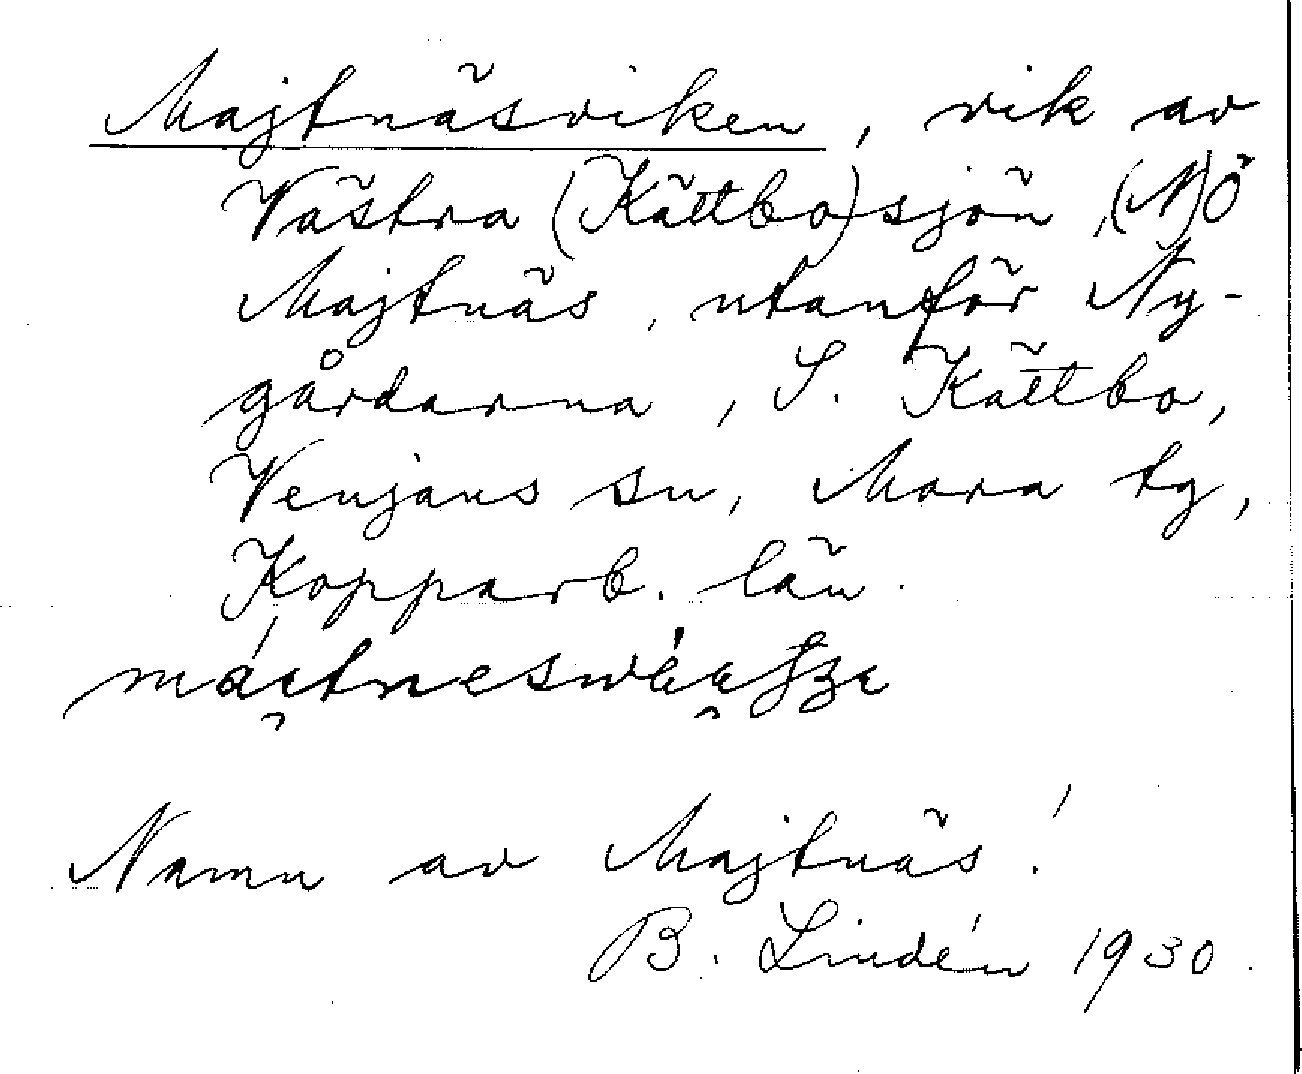 Majtnäsviken, vik av
Västra (Kättbo)sjön, (N)Ö
Majtnäs, utanför Ny-
gårdarna, S. Kättbo,
Venjans sn, Mora tg,
Kopparb. län.
Namn av Majtnäs!
B. Lindén 1930.